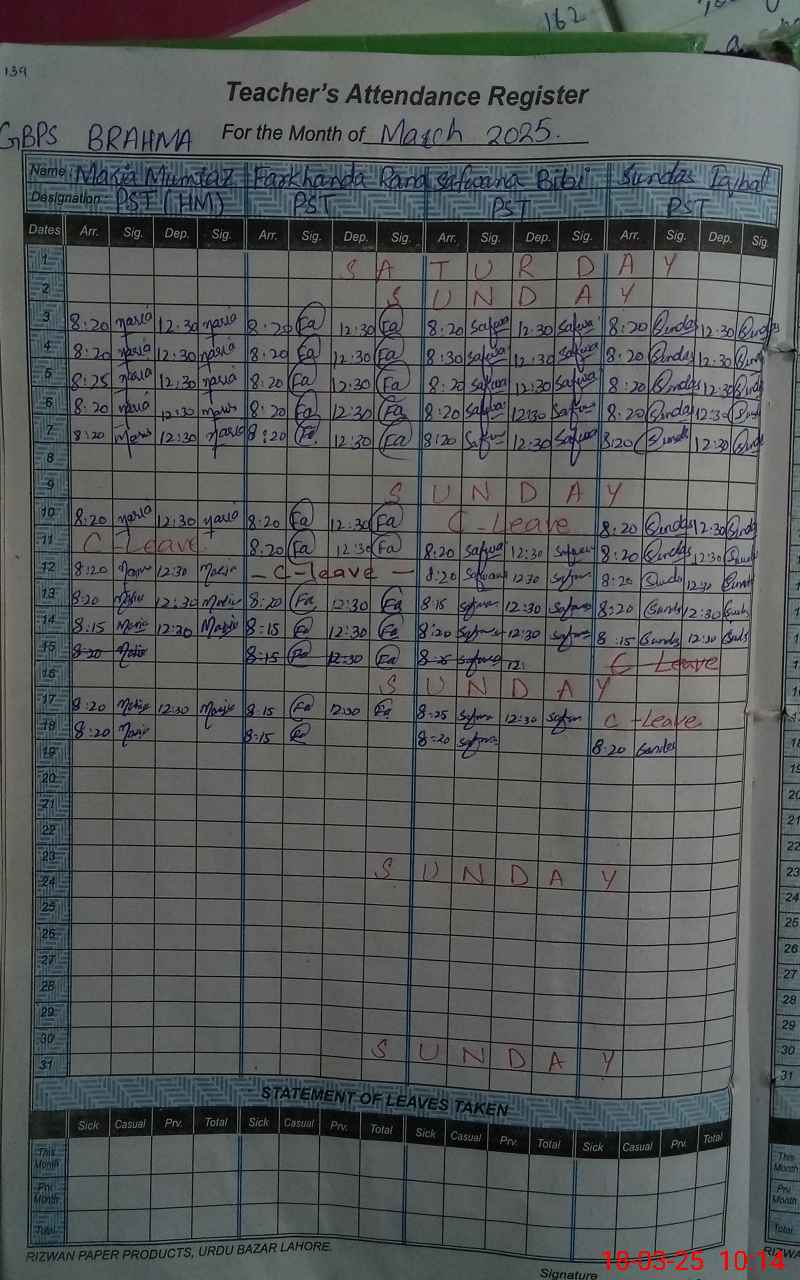 162
139
Teacher's Attendance Register
GBPS BRAHMA For the Month of March 2025.
Name: Maria Mumtaz Farkhanda Rana Safwana Bibi Sundas Iqbal
Designation: PST (HM) PST PST PST
Dates Arr. Sig. Dep. Sig. Arr. Sig. Dep. Sig. Arr. Sig. Dep. Sig. Arr. Sig. Dep. Sig.
1 S A T U R D A Y
2 S U N D A Y
3 8:20 Maria 12:30 Maria 8:20 Fa 12:30 Fa 8:20 Safwa 12:30 Safwa 8:20 Sundas 12:30 Sundas
4 8:20 Maria 12:30 Maria 8:20 Fa 12:30 Fa 8:30 Safwa 12:30 Safwa 8:20 Sundas 12:30 Sunds
5 8:25 Maria 12:30 Maria 8:20 Fa 12:30 Fa 8:20 Safwa 12:30 Safwa 8:20 Sundas 12:30 Sunds
6 8:20 Maria 12:30 Maria 8:20 Fa 12:30 Fa 8:20 Safwa 12:30 Safwa 8:20 Sundas 12:30 Sund
7 8:20 Maria 12:30 Maria 8:20 Fa 12:30 Fa 8:20 Safwa 12:30 Safwa 8:20 Sunds 12:30 Sund
8
9 S U N D A Y
10 8:20 Maria 12:30 Maria 8:20 Fa 12:30 Fa C-Leave 8:20 Sundas 12:30 Sunds
11 C-Leave 8:20 Fa 12:30 Fa 8:20 Safwa 12:30 Safwa 8:20 Sundas 12:30 Sunds
12 8:20 Maria 12:30 Maria - C-leave - 8:20 Safwana 12:30 Safwa 8:20 Sunds 12:30 Sunds
13 8:20 Maria 12:30 Maria 8:20 Fa 12:30 Fa 8:15 Safwa 12:30 Safwa 8:20 Sunds 12:30 Sunds
14 8:15 Maria 12:30 Maria 8:15 Fa 12:30 Fa 8:20 Safwa 12:30 Safwa 8:15 Sunds 12:30 Sunds
15 8:20 Maria 8:15 Fa 12:30 Fa 8:25 Safwa 12: C Leave
16 S U N D A Y
17 8:20 Maria 12:30 Maria 8:15 Fa 12:30 Fa 8:25 Safwa 12:30 Safwa C-Leave
18 8:20 Maria 8:15 Fa 8:20 Safwa 8:20 Sundas
19
20
21
22
23 S U N D A Y
24
25
26
27
28
29
30 S U N D A Y
31
STATEMENT OF LEAVES TAKEN
Sick Casual Prv. Total Sick Casual Prv. Total Sick Casual Prv. Total Sick Casual Prv. Total
This Month
Prv. Month
Total
RIZWAN PAPER PRODUCTS, URDU BAZAR LAHORE.
Signature
18-03-25 10:14